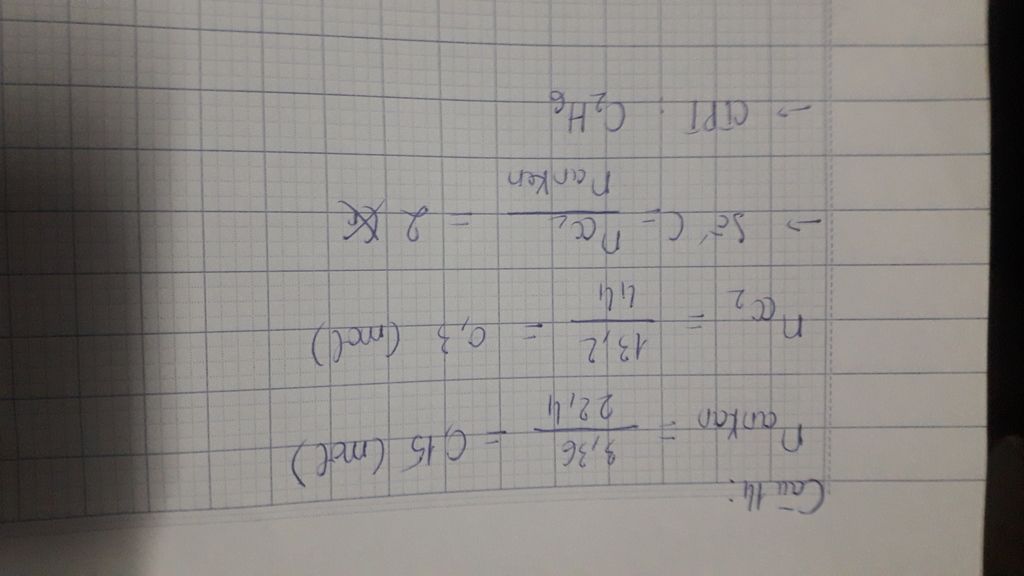 Câu 14:
n ankan = 3,36 / 22,4 = 0,15 (mol)
n CO2 = 13,2 / 44 = 0,3 (mol)
→ Số C = n CO2 / n anken = 2
→ CTPT : C2H6